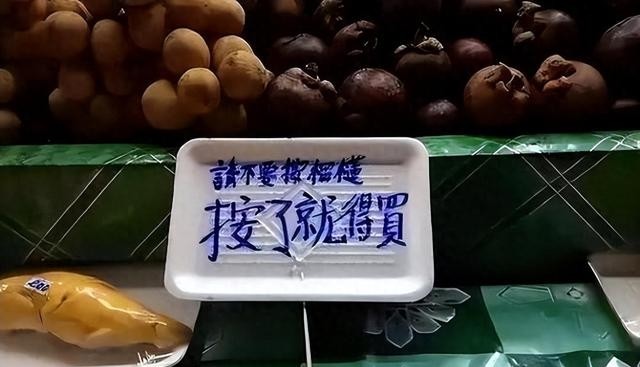 請不要榴槤
按了就得買